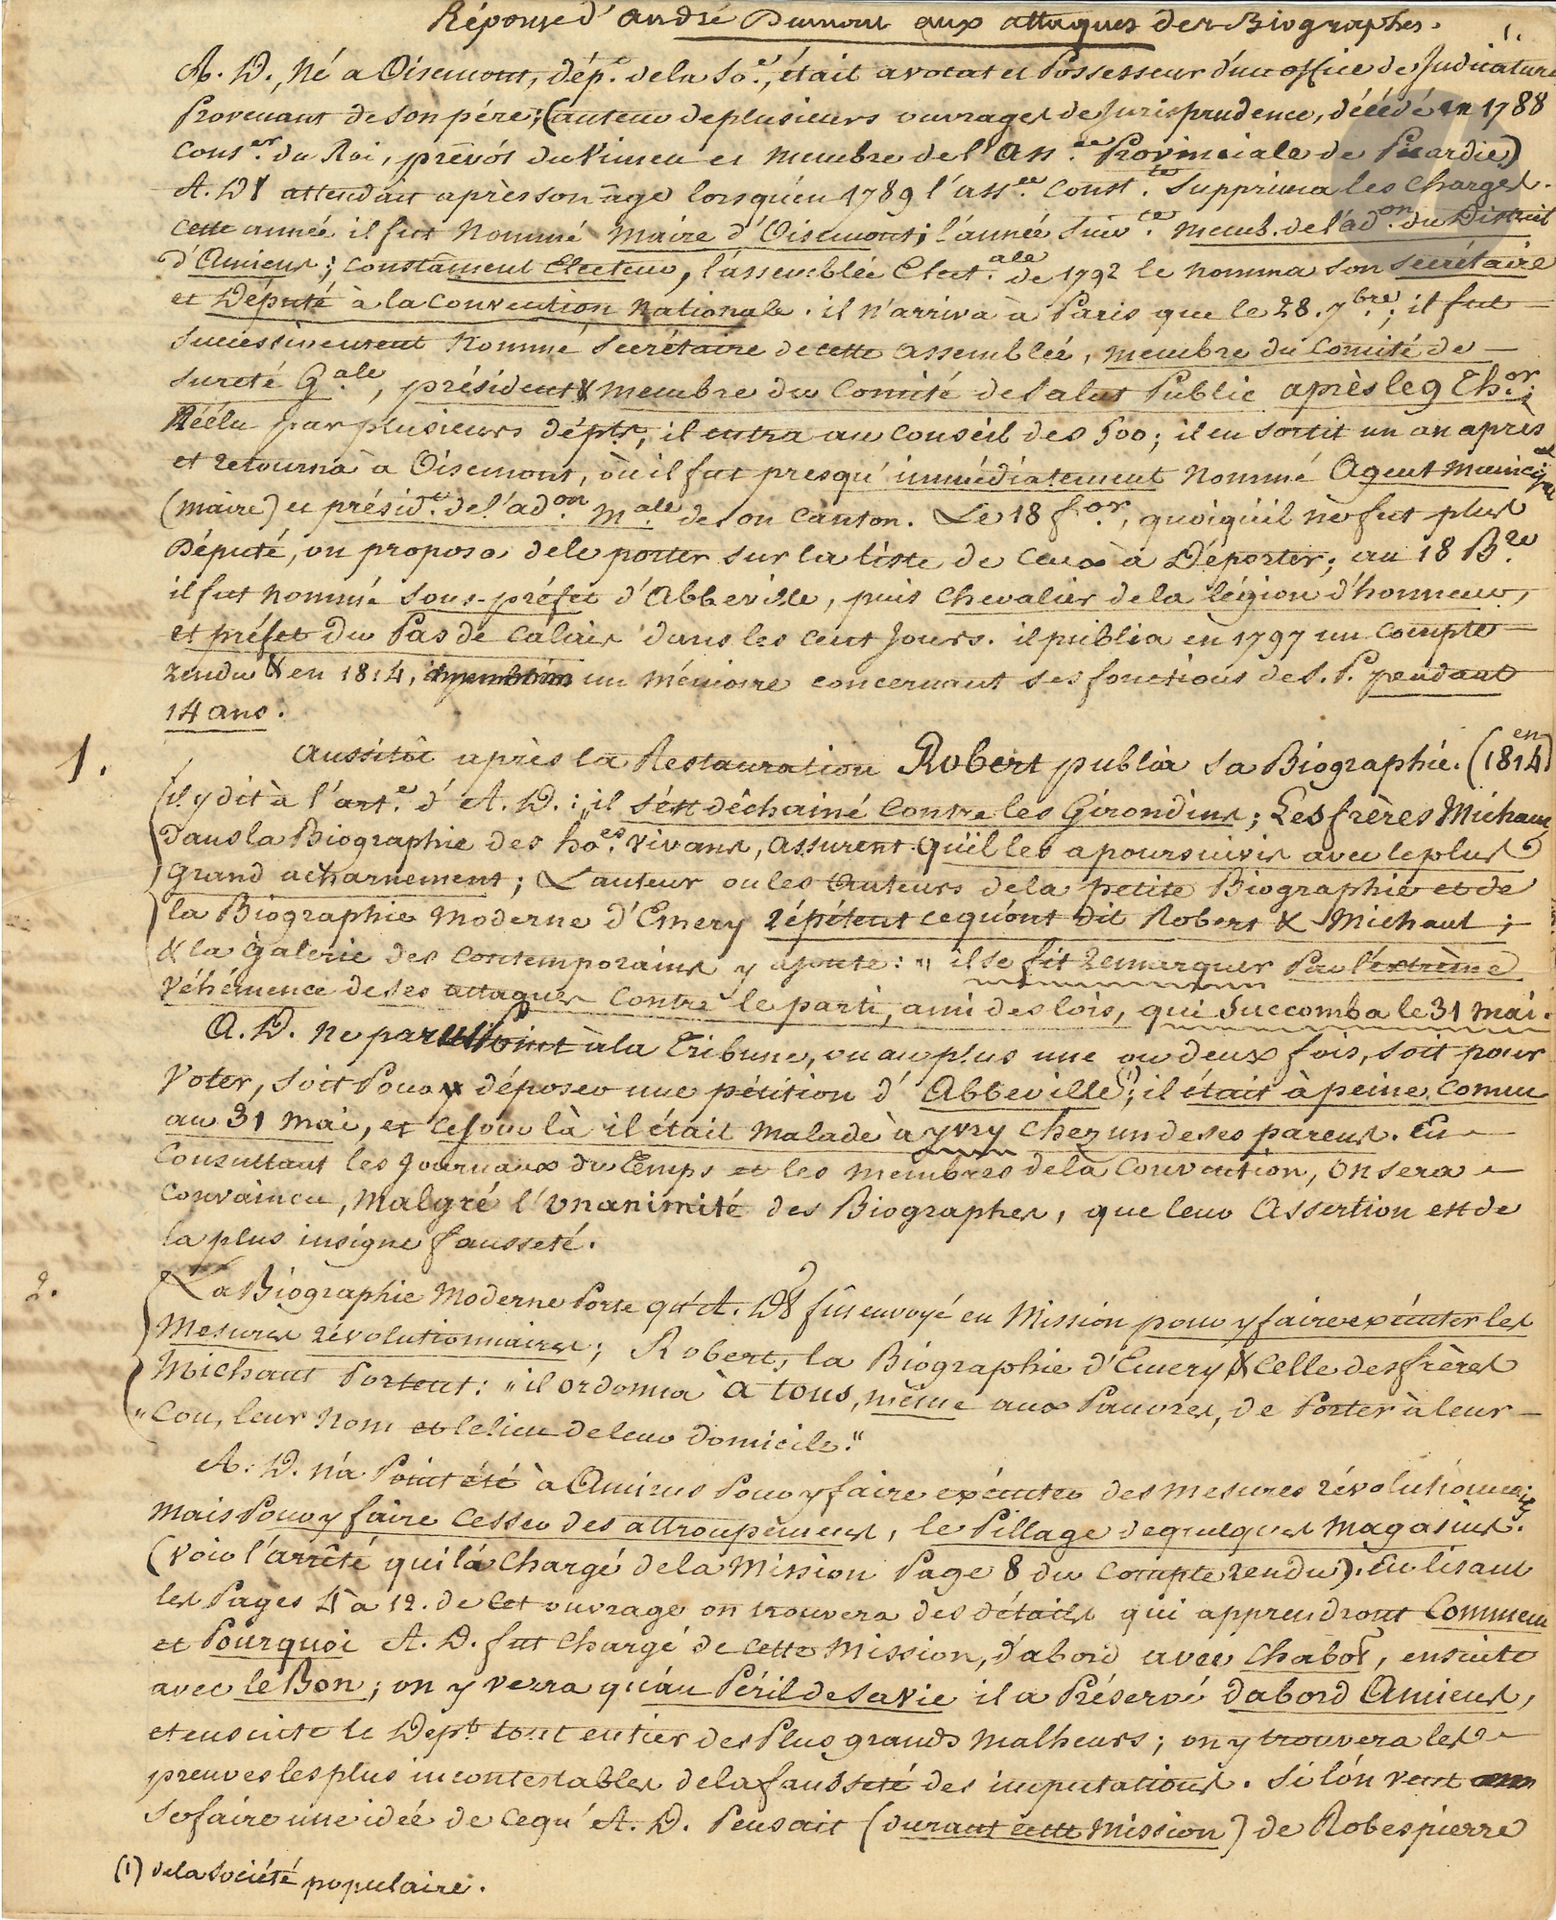 Réponse d'André Dumont aux attaques des Biographes.
1.
A. D., Né a Oisemont, dép.t de la So.e, était avocat et Possesseur d'un office de Judicature
Provenant de son père; (auteur de plusieurs ouvrages de Jurisprudence, décédé en 1788
Cons.er du Roi, prévôt du Vimeu et membre de l'Ass.ée Provinciale de Picardie)
A. D. attendait après son âge lorsqu'en 1789 l'ass.ée Const.te Supprima les Charges.
Cette année il fut Nommé Maire d'Oisemont; l'année suiv.te memb. de l'ad.on du District
d'Amiens; constament Electeur, l'assemblée Elect.ale de 1792 le nomma son secrétaire
et Député à la Convention Nationale. il n'arriva à Paris que le 28. 7bre; il fut
Successivement Nommé Secrétaire de cette assemblée, membre du Comité de
Sureté G.ale, président & membre du Comité de Salut Public après le 9 Th.or;
Réélu par plusieurs dépts, il entra au Conseil des 500; il en sortit un an après
et retourna à Oisemont, où il fut presqu'immédiatement nommé Agent municipal
(maire) et présid.t de l'ad.on M.ale de son Canton. Le 18 f.or, quoiqu'il ne fut plus
Député, on proposa de le porter sur la liste de ceux à Déporter; au 18 B.re
il fut nommé Sous-préfet d'Abbeville, puis Chevalier de la légion d'honneur,
et préfet du Pas de Calais dans les cent Jours. il publia en 1797 un Compte
rendu & en 1814, un mémoire concernant ses fonctions de S. P. pendant
14 ans.
1. Aussitôt après la Restauration Robert publia sa Biographie. (en 1814)
il y dit à l'art.e d'A. D.: il s'est déchainé Contre les Girondins; Les frères Michaut
Dans la Biographie des ho.es vivans, assurent qu'il les a poursuivis avec le plus
Grand acharnement; L'auteur ou les Auteurs de la petite Biographie et de
la Biographie Moderne d'Emery répétent ce qu'ont dit Robert & Michaut;
& la galerie des Contemporains y ajoute: " il se fit remarquer par l'extrème
véhémence de ses attaques contre le parti, ami des lois, qui Succomba le 31 mai.
A. D. ne parut Point à la Tribune, ou au plus une ou deux fois, soit pour
Voter, soit Pour déposer une pétition d'Abbeville (1); il était à peine connu
au 31 mai, et ce jour là il était malade à yvry chez un de ses parens. En
Consultant les Journaux du Temps et les membres de la Convention, on sera
Convaincu, malgré l'Unanimité des Biographes, que leur Assertion est de
la plus insigne fausseté.
2. La Biographie Moderne Porte qu'A. D. fût envoyé en Mission pour y faire exécuter les
Mesures révolutionnaires; Robert, la Biographie d'Emery & Celle des frères
Michaut Portent: "il ordonna à tous, même aux Pauvres, de Porter à leur
"Cou, leur nom et le lieu de leur domicile."
A. D. n'a Point été à Amiens Pour y faire exécuter des mesures révolutionnaires
Mais Pour y faire Cesser des attroupemens, le Pillage de quelques Magasins.
(voir l'arrêté qui l'a Chargé de la Mission Page 8 du Compte rendu). En lisant
les Pages 4 à 12. de Cet ouvrage on trouvera des détails qui apprendront Comment
et Pourquoi A. D. fut Chargé de cette Mission, d'abord avec Chabot, ensuite
avec le Bon; on y verra qu'au Péril de sa Vie il a Préservé D'abord Amiens,
et ensuite le Dep.t tout entier des Plus grands Malheurs; on y trouvera les
preuves les plus incontestables de la fausseté des imputations. Si l'on veut
Se faire une idée de ce qu'A. D. Pensait (durant cette Mission) de Robespierre
(1) de la Société populaire.